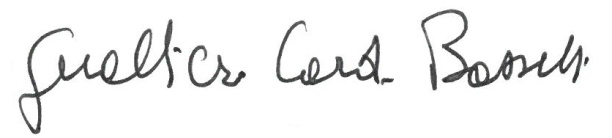 Gualtiero Card. Bassetti